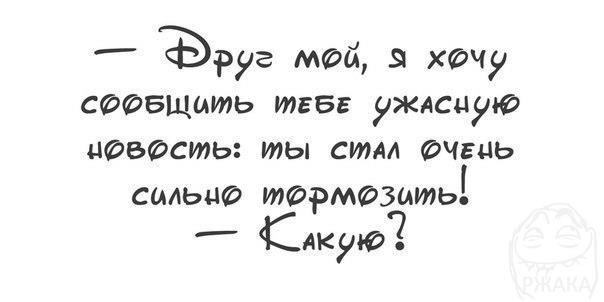 — Друг мой, я хочу
сообщить тебе ужасную
новость: ты стал очень
сильно тормозить!
— Какую?
РЖАКА